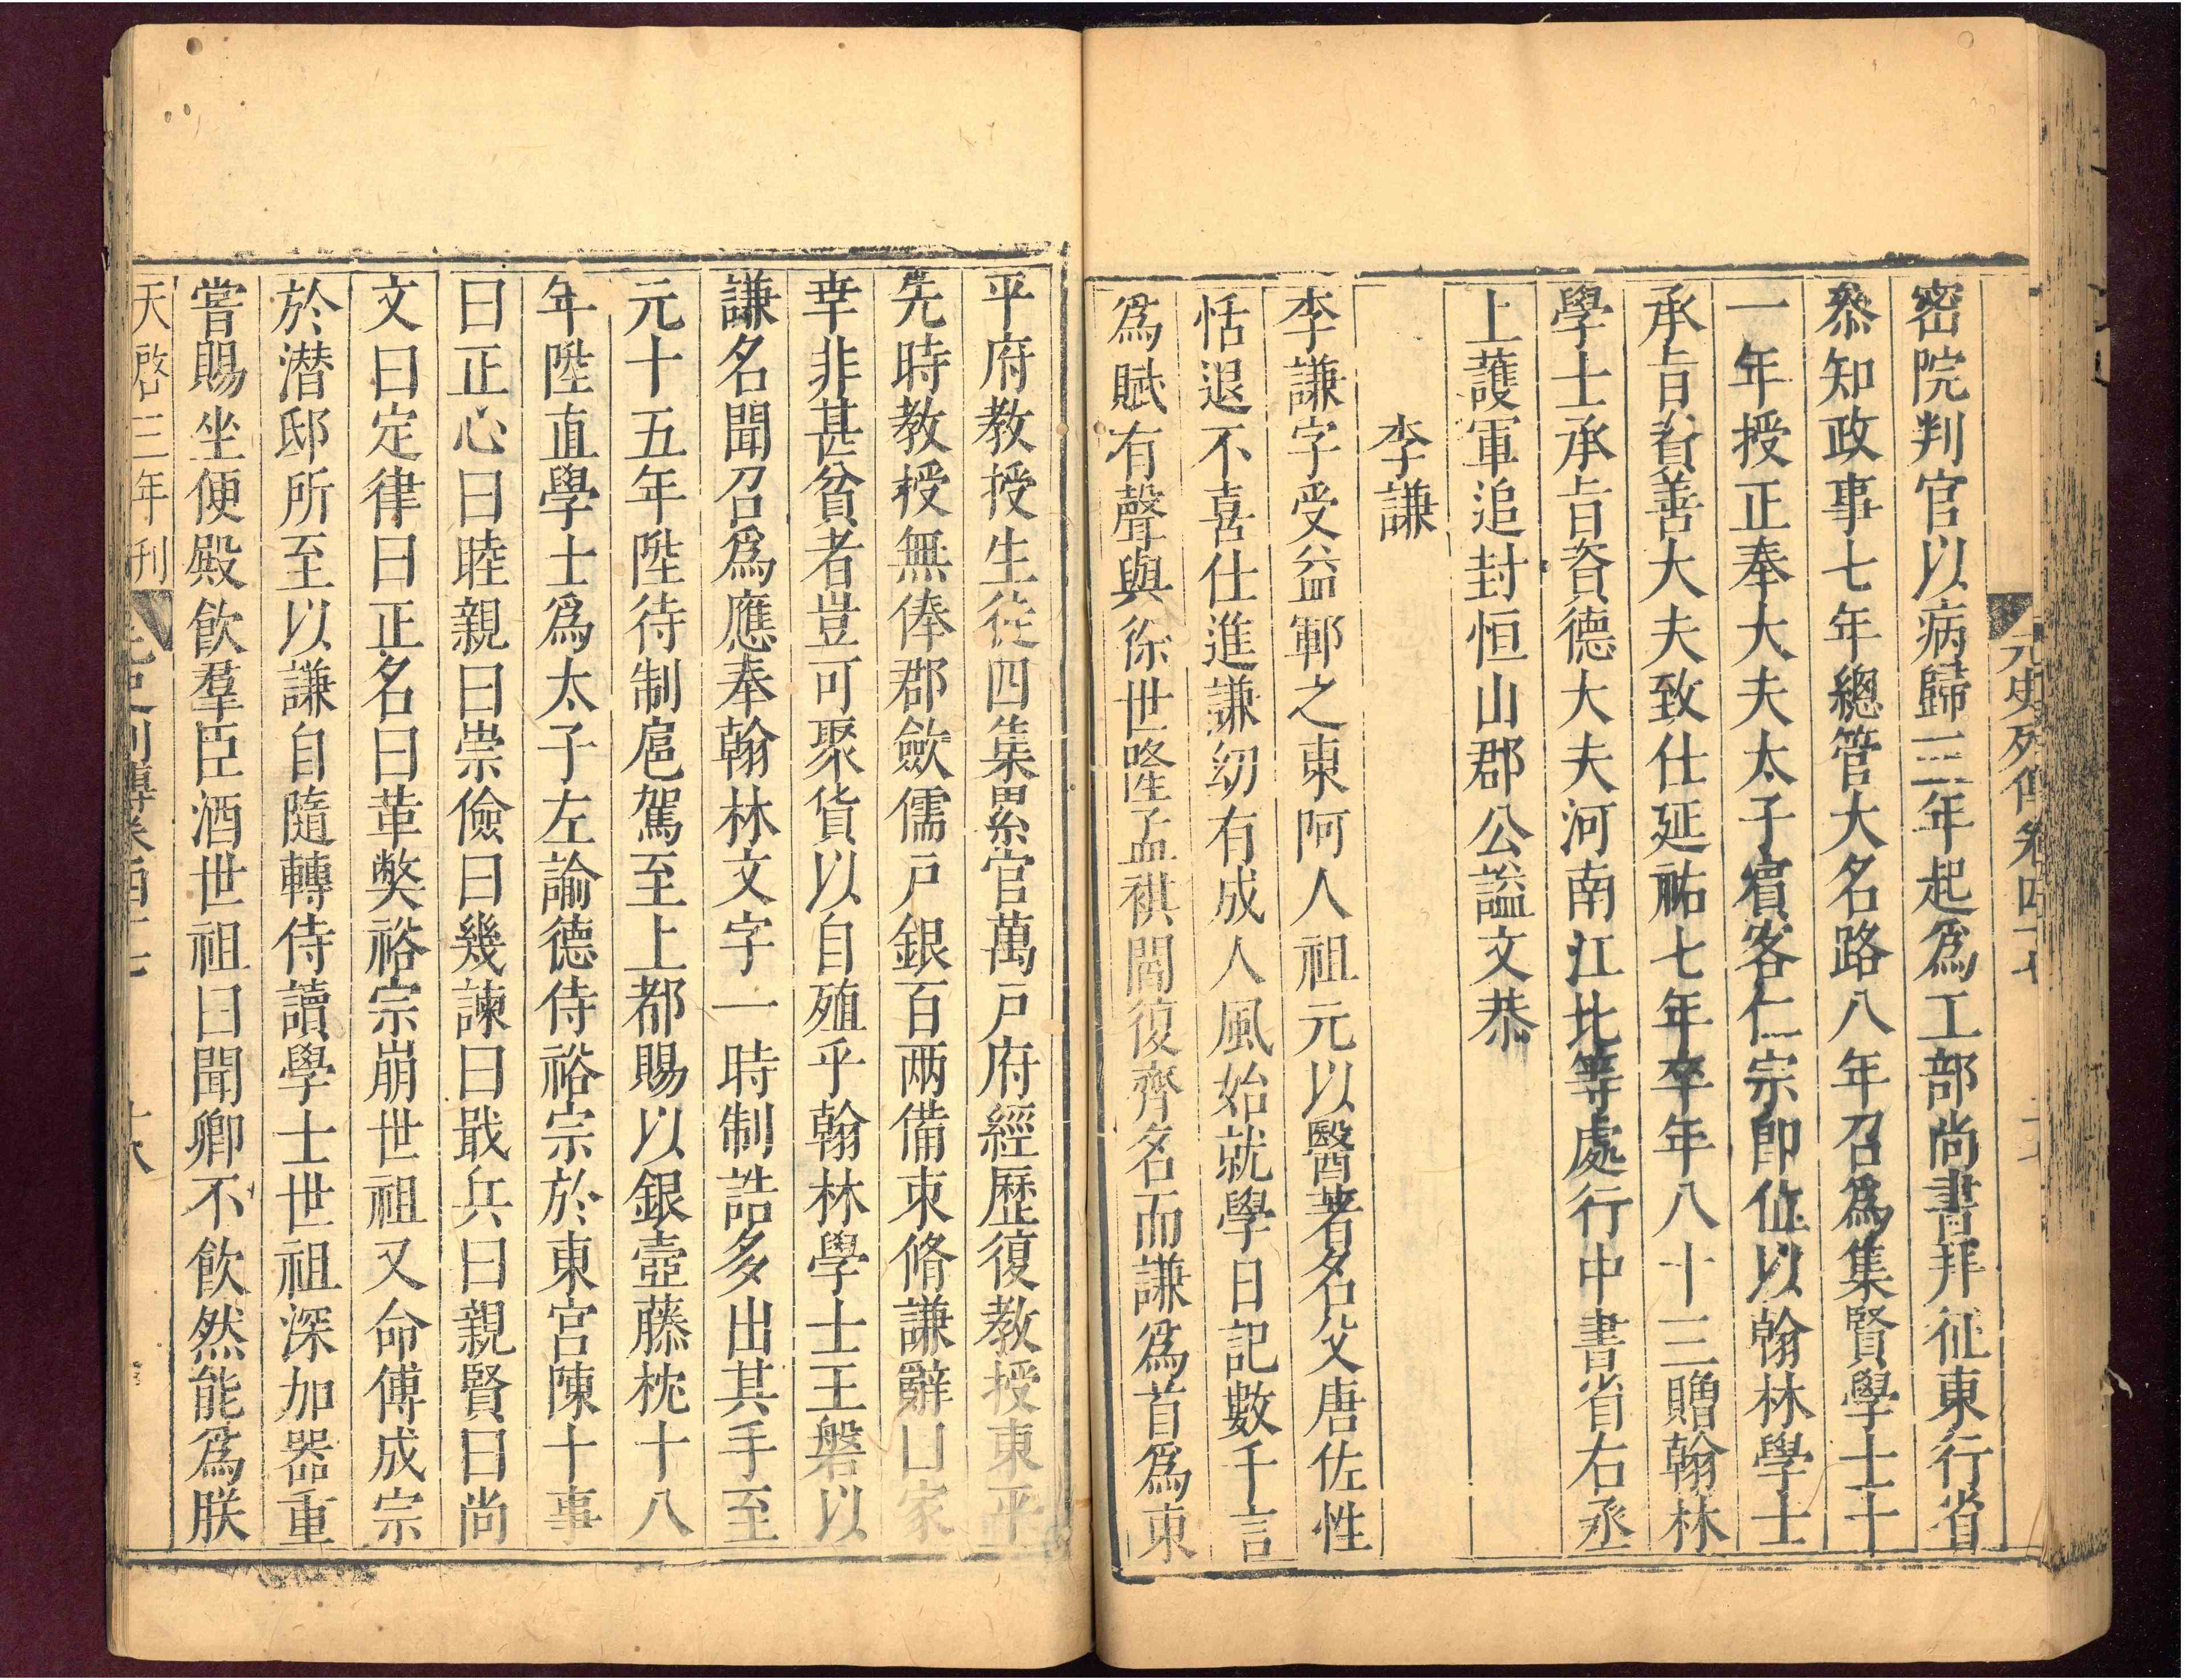 元史列傳卷四十七
密院判官以病歸三年起爲工部尚書拜征東行省
叅知政事七年總管大名路八年召爲集賢學士十
一年授正奉大夫太子賓客仁宗卽位以翰林學士
承旨資善大夫致仕延祐七年卒年八十三贈翰林
學士承旨資德大夫河南江北等處行中書省右丞
上護軍追封恒山郡公謚文恭
李謙
李謙字受益鄆之東阿人祖元以醫著名父唐佐性
恬退不喜仕進謙幼有成人風始就學日記數千言
爲賦有聲與徐世隆孟祺閻復齊名而謙爲首爲東
平府教授生徒四集累官萬戶府經歷復教授東平
先時教授無俸郡斂儒戶銀百兩備束脩謙辭曰家
幸非甚貧者豈可聚貨以自殖乎翰林學士王磐以
謙名聞召爲應奉翰林文字一時制誥多出其手至
元十五年陞待制扈駕至上都賜以銀壺藤枕十八
年陞直學士爲太子左諭德侍裕宗於東宮陳十事
曰正心曰睦親曰崇儉曰幾諫曰戢兵曰親賢曰尚
文曰定律曰正名曰革弊裕宗崩世祖又命傅成宗
於潛邸所至以謙自隨轉侍讀學士世祖深加器重
嘗賜坐便殿飲羣臣酒世祖曰聞卿不飲然能爲朕
天啓三年刊 元史列傳卷四十七 十八